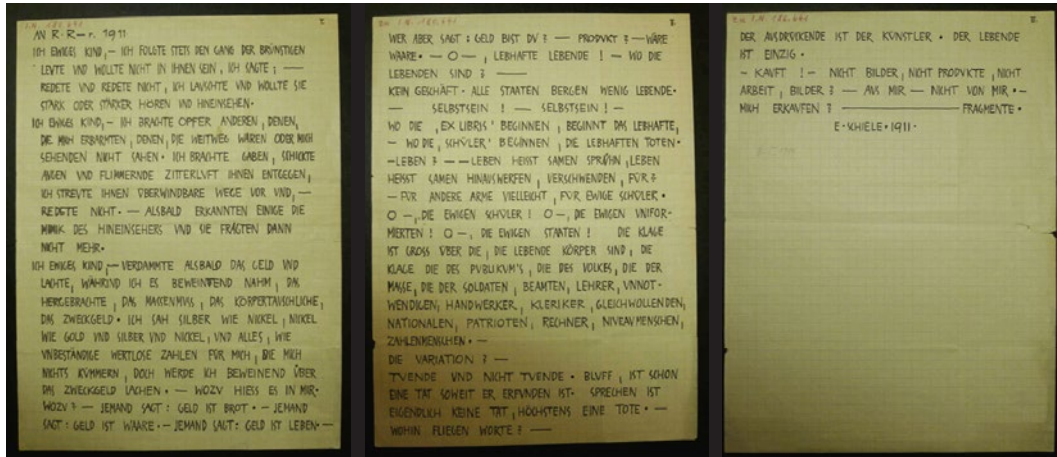 I.N. 180.641
AN R·R–r. 1911
ICH EWIGES KIND,– ICH FOLGTE STETS DEN GANG DER BRÜNSTIGEN
LEVTE VND WOLLTE NICHT IN IHNEN SEIN, ICH SAGTE ; —
REDETE VND REDETE NICHT, ICH LAVSCHTE VND WOLLTE SIE
STARK ODER STÄRKER HÖREN VND HINEINSEHEN·
ICH EWIGES KIND,– ICH BRACHTE OPFER ANDEREN, DENEN,
DIE MICH ERBARMTEN, DENEN, DIE WEITWEG WAREN ODER MICH
SEHENDEN NICHT SAHEN· ICH BRACHTE GABEN, SCHICKTE
AVGEN VND FLIMMERNDE ZITTERLVFT IHNEN ENTGEGEN,
ICH STREVTE IHNEN ÜBERWINDBARE WEGE VOR VND,—
REDETE NICHT·— ALSBALD ERKANNTEN EINIGE DIE
MIMIK DES HINEINSEHERS VND SIE FRAGTEN DANN
NICHT MEHR·
ICH EWIGES KIND,— VERDAMMTE ALSBALD DAS GELD VND
LACHTE, WÄHRND ICH ES BEWEINTEND NAHM, DAS
HERGEBRACHTE, DAS MASSENMVSS, DAS KÖRPERTAVSCHLICHE,
DAS ZWECKGELD· ICH SAH SILBER WIE NICKEL, NICKEL
WIE GOLD VND SILBER VND NICKEL, VND ALLES, WIE
VNBESTÄNDIGE WERTLOSE ZAHLEN FÜR MICH, DIE MICH
NICHTS KÜMMERN, DOCH WERDE ICH BEWEINEND ÜBER
DAS ZWECKGELD LACHEN·— WOZV HIESS ES IN MIR·
WOZV?— JEMAND SAGT: GELD IST BROT·– JEMAND
SAGT: GELD IST WAARE·– JEMAND SAGT: GELD IST LEBEN·—
Zu I.N. 180.641
II.
WER ABER SAGT: GELD BIST DV?— PRODVKT?—WÄRE
WAARE·— O—, LEBHAFTE LEBENDE !— WO DIE
LEBENDEN SIND? —
KEIN GESCHÄFT· ALLE STAATEN BERGEN WENIG LEBENDE·
— SELBSTSEIN ! — SELBSTSEIN !—
WO DIE ,EX LIBRIS' BEGINNEN, BEGINNT DAS LEBHAFTE,
— WO DIE ,SCHÜLER' BEGINNEN, DIE LEBHAFTEN TOTEN·
–LEBEN?——LEBEN HEISST SAMEN SPRÜHN, LEBEN
HEISST SAMEN HINAUSWERFEN, VERSCHWENDEN, FÜR?
— FÜR ANDERE ARME VIELLEICHT, FÜR EWIGE SCHÜLER·
O—, DIE EWIGEN SCHÜLER ! O—, DIE EWIGEN VNIFOR-
MIERTEN ! O—, DIE EWIGEN STAATEN ! DIE KLAGE
IST GROSS ÜBER DIE, DIE LEBENDE KÖRPER SIND, DIE
KLAGE DIE DES PVBLIKVM'S, DIE DES VOLKES, DIE DER
MASSE, DIE DER SOLDATEN, BEAMTEN, LEHRER, VNNOT-
WENDIGEN, HANDWERKER, KLERIKER, GLEICHWOLLENDEN,
NATIONALEN, PATRIOTEN, RECHNER, NIVEAVMENSCHEN,
ZAHLENMENSCHEN·—
DIE VARIATION?—
TVENDE VND NICHT TVENDE· BLVFF, IST SCHON
EINE TAT SOWEIT ER ERFVNDEN IST· SPRECHEN IST
EIGENDLICH KEINE TAT, HÖCHSTENS EINE TOTE·—
WOHIN FLIEGEN WORTE?—
Zu I.N. 180.641
DER AVSDRÜCKENDE IST DER KÜNSTLER· DER LEBENDE
IST EINZIG·
– KAVFT !– NICHT BILDER, NICHT PRODVKTE, NICHT
ARBEIT, BILDER?— AVS MIR— NICHT VON MIR·–
MICH ERKAVFEN? — FRAGMENTE·
E·SCHIELE·1911·